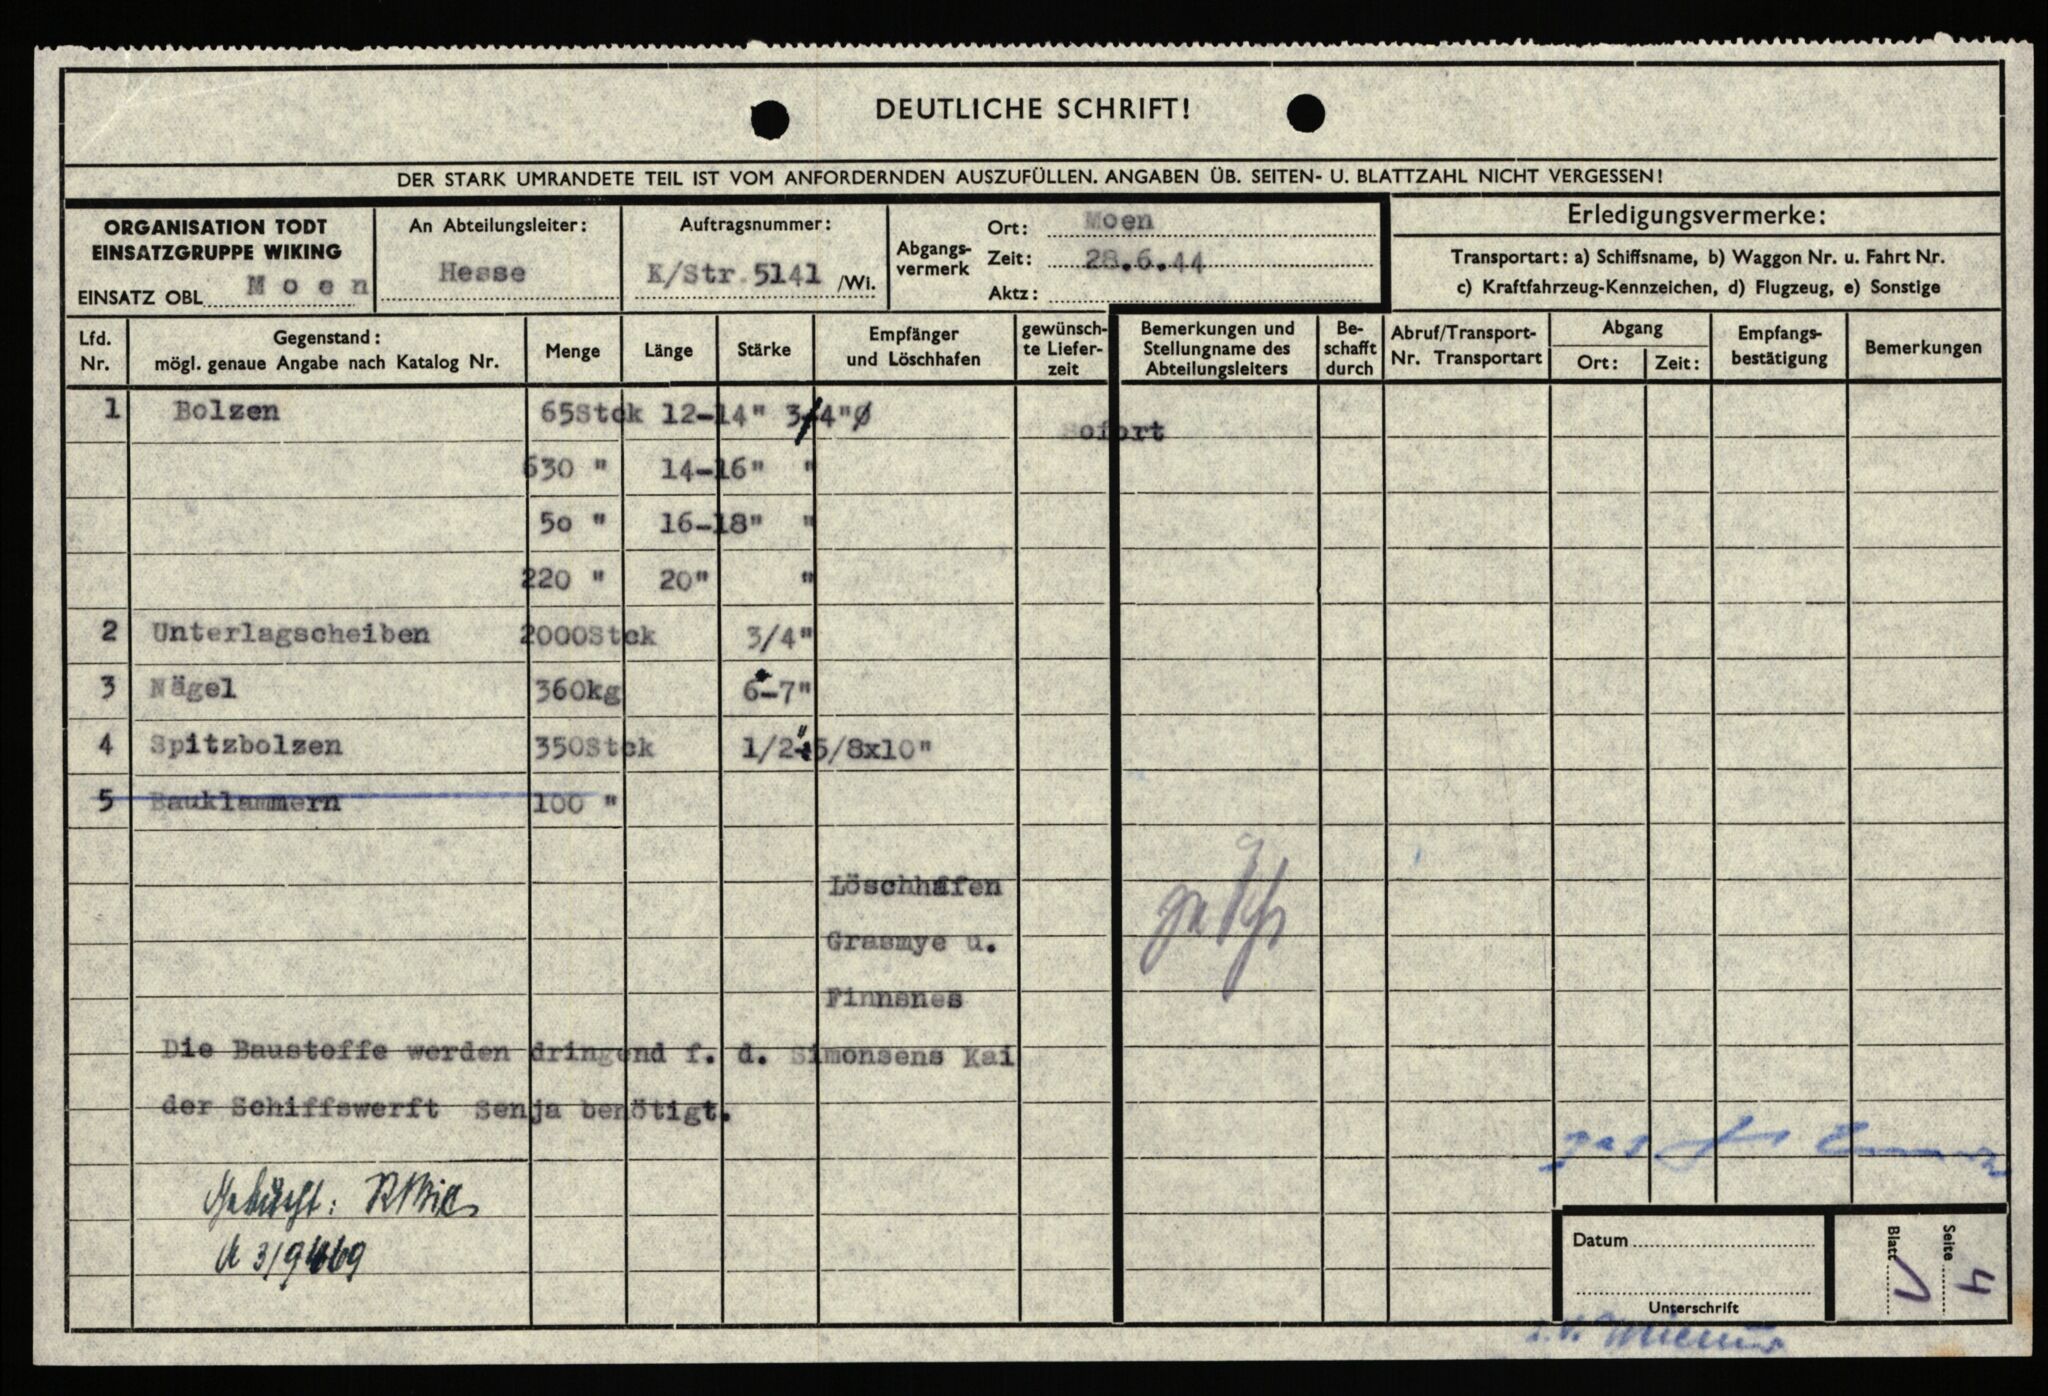 DEUTLICHE SCHRIFT!
DER STARK UMRANDETE TEIL IST VOM ANFORDERNDEN AUSZUFÜLLEN. ANGABEN ÜB. SEITEN- U. BLATTZAHL NICHT VERGESSEN!
ORGANISATION TODT
EINSATZGRUPPE WIKING
EINSATZ OBL Moen
An Abteilungsleiter:
Hesse
Auftragsnummer:
K/Str.5141 /WI.
Abgangs-
vermerk
Ort: Moen
Zeit: 28.6.44
Aktz:
Erledigungsvermerke:
Transportart: a) Schiffsname, b) Waggon Nr. u. Fahrt Nr.
c) Kraftfahrzeug-Kennzeichen, d) Flugzeug, e) Sonstige
Lfd.
Nr.
Gegenstand:
mögl. genaue Angabe nach Katalog Nr.
Menge
Länge
Stärke
Empfänger
und Löschhafen
gewünsch-
te Liefer-
zeit
Bemerkungen und
Stellungname des
Abteilungsleiters
Be-
schafft
durch
Abruf/Transport-
Nr. Transportart
Abgang
Ort:
Zeit:
Empfangs-
bestätigung
Bemerkungen
1 Bolzen 65Stck 12-14" 3/4"Ø sofort
630 " 14-16" "
50 " 16-18" "
220 " 20" "
2 Unterlagscheiben 2000Stck 3/4"
3 Nägel 360kg 6-7"
4 Spitzbolzen 350Stck 1/2"-5/8x10"
5 Bauklammern 100 "
Löschhafen
Grasmye u.
Finnsnes
Die Baustoffe werden dringend f. d. Simonsens Kai
der Schiffswerft Senja benötigt.
Gebucht:
Datum
Unterschrift
Blatt
Seite 4
i.V.